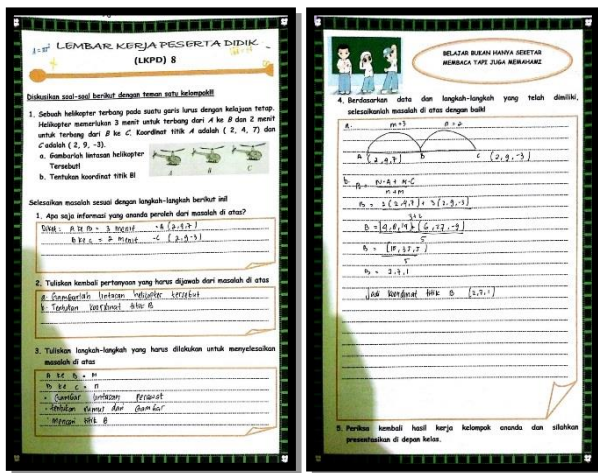 LEMBAR KERJA PESERTA DIDIK
(LKPD) 8
Diskusikan soal-soal berikut dengan teman satu kelompok!!!
1. Sebuah helikopter terbang pada suatu garis lurus dengan kelajuan tetap.
Helikopter memerlukan 3 menit untuk terbang dari A ke B dan 2 menit
untuk terbang dari B ke C. Koordinat titik A adalah ( 2, 4, 7) dan
C adalah ( 2, 9, -3).
a. Gambarlah lintasan helikopter
Tersebut!
b. Tentukan koordinat titik B!
A B C
Selesaikan masalah sesuai dengan langkah-langkah berikut ini!
1. Apa saja informasi yang ananda peroleh dari masalah di atas?
Diket: A ke B = 3 menit - A (2,4,7)
B ke C = 2 menit - C (2,9-3)
2. Tuliskan kembali pertanyaan yang harus dijawab dari masalah di atas
a. Gambarlah lintasan helicopter tersebut
b. Tentukan koordinat titik B
3. Tuliskan langkah-langkah yang harus dilakukan untuk menyelesaikan
masalah di atas
A ke B = M
B ke C = n
- Gambar lintasan pesawat
- tentukan rumus dari Gambar
- Mencari titik B
BELAJAR BUKAN HANYA SEKETAR
MEMBACA TAPI JUGA MEMAHAMI
4. Berdasarkan data dan langkah-langkah yang telah dimiliki,
selesaikanlah masalah di atas dengan baik!
a. m=3 n=2
A (2,4,7) B C (2,9,-3)
b.
B = n.A + M.C
n+m
B = 2(2,4,7) + 3(2,9,-3)
3+2
5
5
B = 2,7,1
Jadi koordinat titik B (2,7,1)
5. Periksa kembali hasil kerja kelompok ananda dan silahkan
presentasikan di depan kelas.